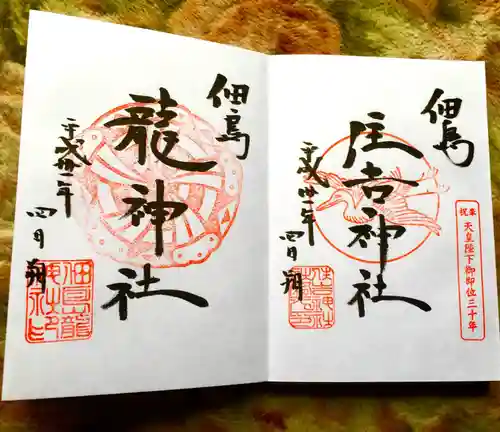 佃島
住吉神社
平成卅一年
四月朔
奉祝 天皇陛下御即位三十年
佃島
龍神社
平成卅一年
四月朔